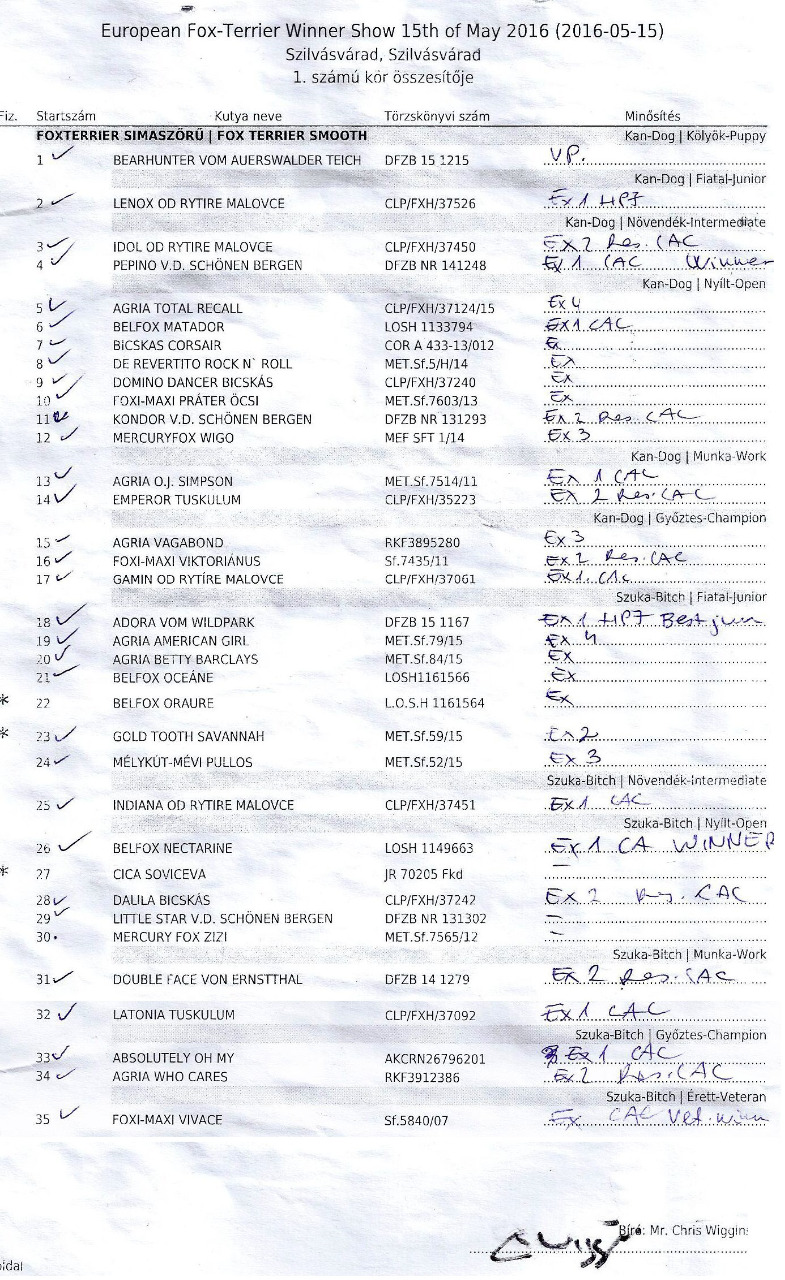 European Fox-Terrier Winner Show 15th of May 2016 (2016-05-15)
Szilvásvárad, Szilvásvárad
1. számú kör összesítője
Fiz. Startszám Kutya neve Törzskönyvi szám Minősítés
FOXTERRIER SIMASZŐRŰ | FOX TERRIER SMOOTH Kan-Dog | Kölyök-Puppy
1 BEARHUNTER VOM AUERSWALDER TEICH DFZB 15 1215 VP.
Kan-Dog | Fiatal-Junior
2 LENOX OD RYTIRE MALOVCE CLP/FXH/37526 Ex 1 HPJ
Kan-Dog | Növendék-Intermediate
3 IDOL OD RYTIRE MALOVCE CLP/FXH/37450 EX 2 Res. CAC
4 PEPINO V.D. SCHÖNEN BERGEN DFZB NR 141248 Ex 1 CAC Winner
Kan-Dog | Nyílt-Open
5 AGRIA TOTAL RECALL CLP/FXH/37124/15 Ex 4
6 BELFOX MATADOR LOSH 1133794 EX1 CAC
7 BiCSKAS CORSAIR COR A 433-13/012 Ex
8 DE REVERTITO ROCK N` ROLL MET.Sf.5/H/14 Ex
9 DOMINO DANCER BICSKÁS CLP/FXH/37240 Ex
10 FOXI-MAXI PRÁTER ÖCSI MET.Sf.7603/13 Ex
11 KONDOR V.D. SCHÖNEN BERGEN DFZB NR 131293 Ex 2 Res CAC
12 MERCURYFOX WIGO MEF SFT 1/14 Ex 3
Kan-Dog | Munka-Work
13 AGRIA O.J. SIMPSON MET.Sf.7514/11 Ex 1 CAC
14 EMPEROR TUSKULUM CLP/FXH/35223 Ex 2 Res. CAC
Kan-Dog | Győztes-Champion
15 AGRIA VAGABOND RKF3895280 Ex 3
16 FOXI-MAXI VIKTORIÁNUS Sf.7435/11 Ex 2 Res. CAC
17 GAMIN OD RYTÍRE MALOVCE CLP/FXH/37061 Ex 1 CAC
Szuka-Bitch | Fiatal-Junior
18 ADORA VOM WILDPARK DFZB 15 1167 Ex 1 HPJ Best jun
19 AGRIA AMERICAN GIRL MET.Sf.79/15 Ex 4
20 AGRIA BETTY BARCLAYS MET.Sf.84/15 Ex
21 BELFOX OCEÁNE LOSH1161566 Ex
* 22 BELFOX ORAURE L.O.S.H 1161564 Ex
* 23 GOLD TOOTH SAVANNAH MET.Sf.59/15 Ex 2
24 MÉLYKÚT-MÉVI PULLOS MET.Sf.52/15 Ex 3
Szuka-Bitch | Növendék-Intermediate
25 INDIANA OD RYTIRE MALOVCE CLP/FXH/37451 Ex 1 CAC
Szuka-Bitch | Nyílt-Open
26 BELFOX NECTARINE LOSH 1149663 Ex 1 CA WINNER
* 27 CICA SOVICEVA JR 70205 Fkd —
28 DAULA BICSKÁS CLP/FXH/37242 Ex 2 Res. CAC
29 LITTLE STAR V.D. SCHÖNEN BERGEN DFZB NR 131302 —
30 MERCURY FOX ZIZI MET.Sf.7565/12 —
Szuka-Bitch | Munka-Work
31 DOUBLE FACE VON ERNSTTHAL DFZB 14 1279 Ex 2 Res. CAC
32 LATONIA TUSKULUM CLP/FXH/37092 Ex 1 CAC
Szuka-Bitch | Győztes-Champion
33 ABSOLUTELY OH MY AKCRN26796201 Ex 1 CAC
34 AGRIA WHO CARES RKF3912386 Ex 2 Res. CAC
Szuka-Bitch | Érett-Veteran
35 FOXI-MAXI VIVACE Sf.5840/07 Ex CAC Vet. winn
Bíró: Mr. Chris Wiggins
oldal